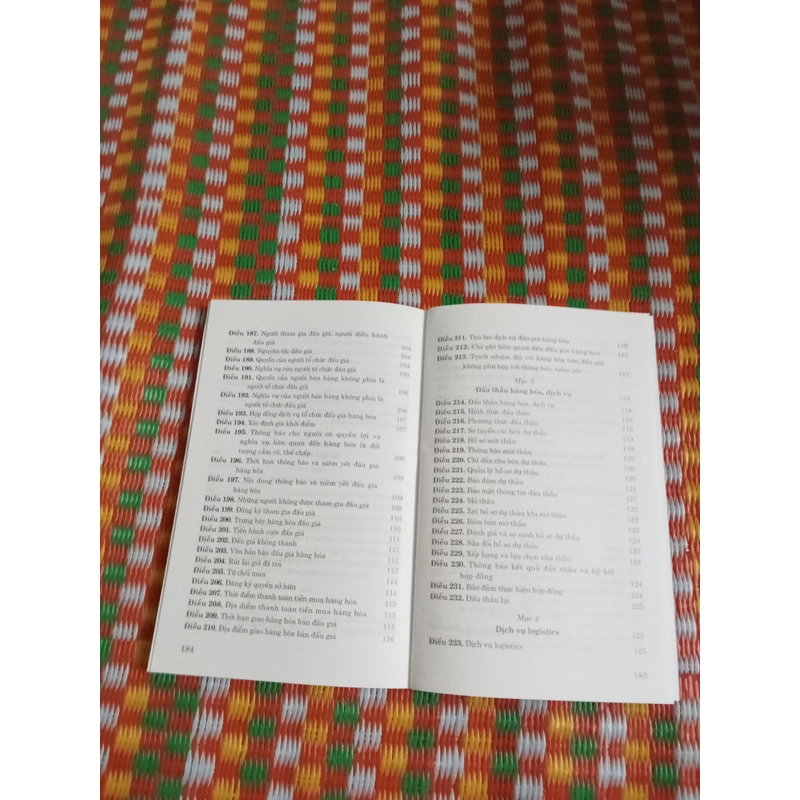 Điều 187. Người tham gia đấu giá, người điều hành
đấu giá 104
Điều 188. Nguyên tắc đấu giá 104
Điều 189. Quyền của người tổ chức đấu giá 104
Điều 190. Nghĩa vụ của người tổ chức đấu giá 105
Điều 191. Quyền của người bán hàng không phải là
người tổ chức đấu giá 106
Điều 192. Nghĩa vụ của người bán hàng không phải là
người tổ chức đấu giá 106
Điều 193. Hợp đồng dịch vụ tổ chức đấu giá hàng hóa 107
Điều 194. Xác định giá khởi điểm 107
Điều 195. Thông báo cho người có quyền lợi và
nghĩa vụ liên quan đến hàng hóa là đối
tượng cầm cố, thế chấp 108
Điều 196. Thời hạn thông báo và niêm yết đấu giá
hàng hóa 108
Điều 197. Nội dung thông báo và niêm yết đấu giá
hàng hóa 108
Điều 198. Những người không được tham gia đấu giá 109
Điều 199. Đăng ký tham gia đấu giá 109
Điều 200. Trưng bày hàng hóa đấu giá 110
Điều 201. Tiến hành cuộc đấu giá 110
Điều 202. Đấu giá không thành 111
Điều 203. Văn bản bán đấu giá hàng hóa 112
Điều 204. Rút lại giá đã trả 112
Điều 205. Từ chối mua 113
Điều 206. Đăng ký quyền sở hữu 114
Điều 207. Thời điểm thanh toán tiền mua hàng hóa 114
Điều 208. Địa điểm thanh toán tiền mua hàng hóa 115
Điều 209. Thời hạn giao hàng hóa bán đấu giá 115
Điều 210. Địa điểm giao hàng hóa bán đấu giá 116
184
Điều 211. Thù lao dịch vụ đấu giá hàng hóa 116
Điều 212. Chi phí liên quan đến đấu giá hàng hóa 117
Điều 213. Trách nhiệm đối với hàng hóa bán đấu giá
không phù hợp với thông báo, niêm yết 117
Mục 3
Đấu thầu hàng hóa, dịch vụ 118
Điều 214. Đấu thầu hàng hóa, dịch vụ 118
Điều 215. Hình thức đấu thầu 118
Điều 216. Phương thức đấu thầu 118
Điều 217. Sơ tuyển các bên dự thầu 119
Điều 218. Hồ sơ mời thầu 119
Điều 219. Thông báo mời thầu 119
Điều 220. Chỉ dẫn cho bên dự thầu 120
Điều 221. Quản lý hồ sơ dự thầu 120
Điều 222. Bảo đảm dự thầu 120
Điều 223. Bảo mật thông tin đấu thầu 121
Điều 224. Mở thầu 121
Điều 225. Xét hồ sơ dự thầu khi mở thầu 122
Điều 226. Biên bản mở thầu 122
Điều 227. Đánh giá và so sánh hồ sơ dự thầu 122
Điều 228. Sửa đổi hồ sơ dự thầu 123
Điều 229. Xếp hạng và lựa chọn nhà thầu 123
Điều 230. Thông báo kết quả đấu thầu và ký kết
hợp đồng 124
Điều 231. Bảo đảm thực hiện hợp đồng 124
Điều 232. Đấu thầu lại 125
Mục 4
Dịch vụ logistics 125
Điều 233. Dịch vụ logistics 125
185